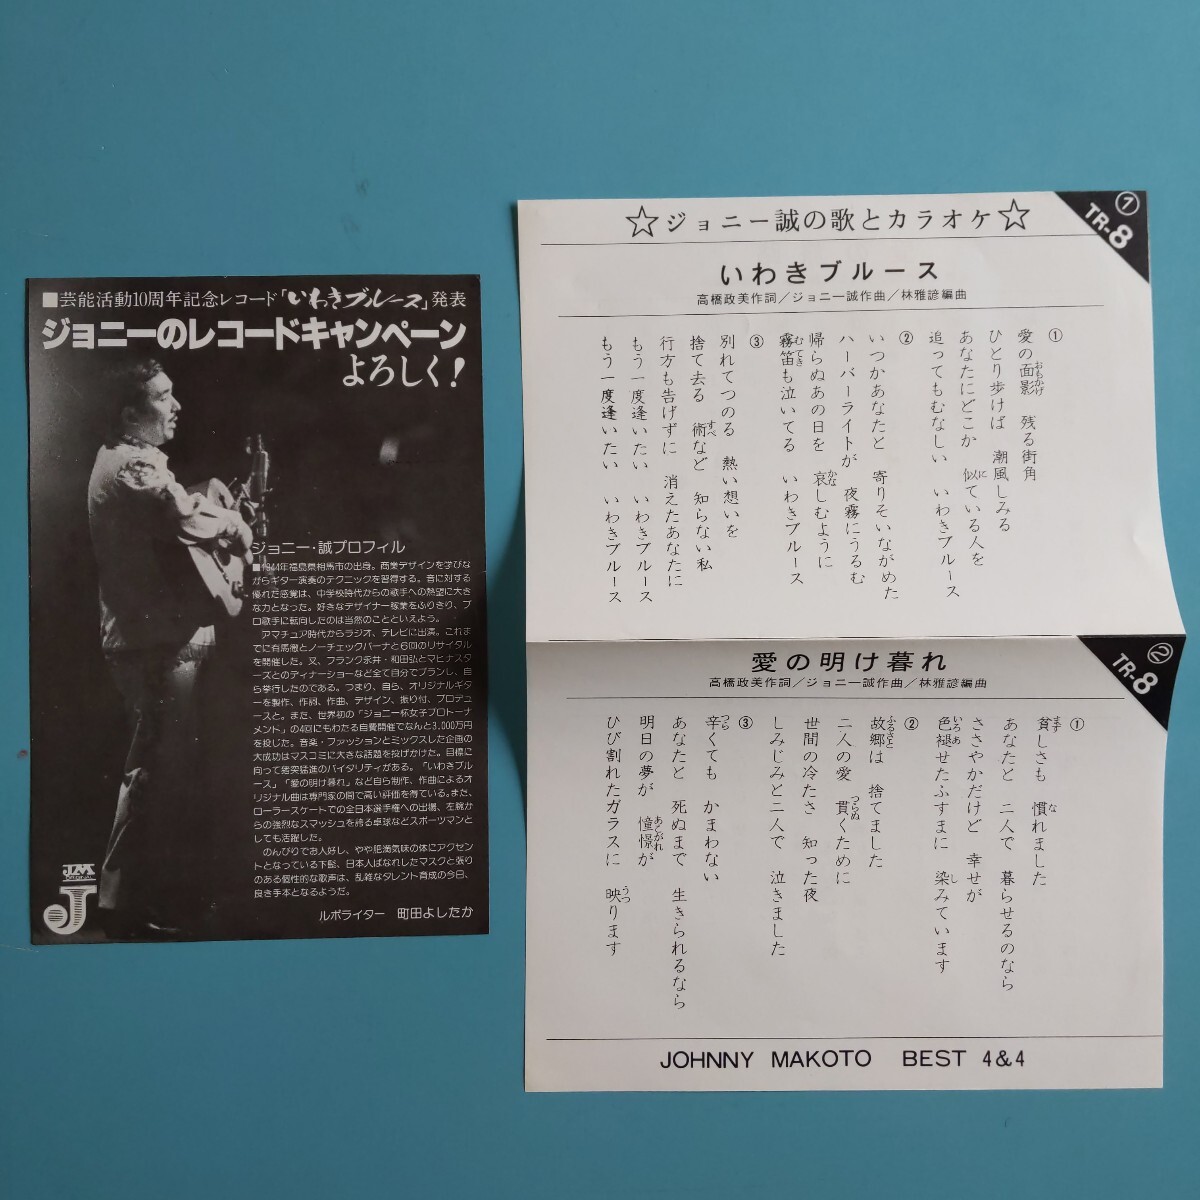 ■芸能活動10周年記念レコード「いわきブルース」発表
ジョニーのレコードキャンペーン
よろしく!
ジョニー・誠プロフィル
■1944年福島県相馬市の出身。商業デザインを学びな
がらギター演奏のテクニックを習得する。音に対する
優れた感覚は、中学校時代からの歌手への熱望に大き
な力となった。好きなデザイナー稼業をふりきり、プ
ロ歌手に転向したのは当然のことといえよう。
アマチュア時代からラジオ、テレビに出演。これま
でに有馬徹とノーチェックバーナと6回のリサイタル
を開催した。又、フランク永井・和田弘とマヒナスタ
ーズとのディナーショーなど全て自分でプランし、自
ら挙行したのである。つまり、自ら、オリジナルギタ
ーを製作、作詞、作曲、デザイン、振り付、プロデュ
ースと。また、世界初の「ジョニー杯女子プロトーナ
メント」の4回にもわたる自費開催でなんと3,000万円
を投じた。音楽・ファッションとミックスした企画の
大成功はマスコミに大きな話題を投げかけた。目標に
向って猪突猛進のバイタリティがある。「いわきブル
ース」「愛の明け暮れ」など自ら制作、作曲によるオ
リジナル曲は専門家の間で高い評価を得ている。また、
ローラースケートでの全日本選手権への出場、左腕か
らの強烈なスマッシュを誇る卓球などスポーツマンと
しても活躍した。
のんびりでお人好し、やや肥満気味の体にアクセン
トとなっている下髭、日本人ばなれしたマスクと張り
のある個性的な歌声は、乱雑なタレント育成の今日、
良き手本となるようだ。
ルポライター 町田よしたか
JM
J
① TR-8
☆ジョニー誠の歌とカラオケ☆
いわきブルース
高橋政美作詞/ジョニー誠作曲/林雅諺編曲
①
愛の面影 残る街角
おもかげ
ひとり歩けば 潮風しみる
あなたにどこか 似ている人を
に
追ってもむなしい いわきブルース
②
いつかあなたと 寄りそいながめた
ハーバーライトが 夜霧にうるむ
帰らぬあの日を 哀しむように
かな
霧笛も泣いてる いわきブルース
むてき
③
別れてつのる 熱い想いを
捨て去る 術など 知らない私
すべ
行方も告げずに 消えたあなたに
もう一度逢いたい いわきブルース
もう一度逢いたい いわきブルース
② TR-8
愛の明け暮れ
高橋政美作詞/ジョニー誠作曲/林雅諺編曲
①
貧しさも 慣れました
まず な
あなたと 二人で 暮らせるのなら
ささやかだけど 幸せが
色褪せたふすまに 染みています
いろあ し
②
故郷は 捨てました
ふるさと
二人の愛 貫くために
つらぬ
世間の冷たさ 知った夜
しみじみと二人で 泣きました
③
辛くても かまわない
つら
あなたと 死ぬまで 生きられるなら
明日の夢が 憧憬が
あくがれ
ひび割れたガラスに 映ります
うつ
JOHNNY MAKOTO BEST 4&4